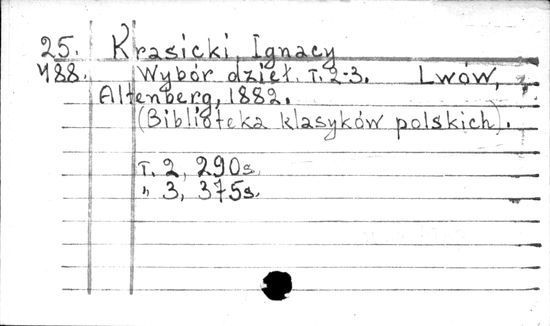 25. Krasicki, Ignacy
488. Wybór dzieł. T. 2-3. Lwów,
Altenberg, 1882.
(Biblioteka klasyków polskich).
T. 2, 290s.
" 3, 375s.